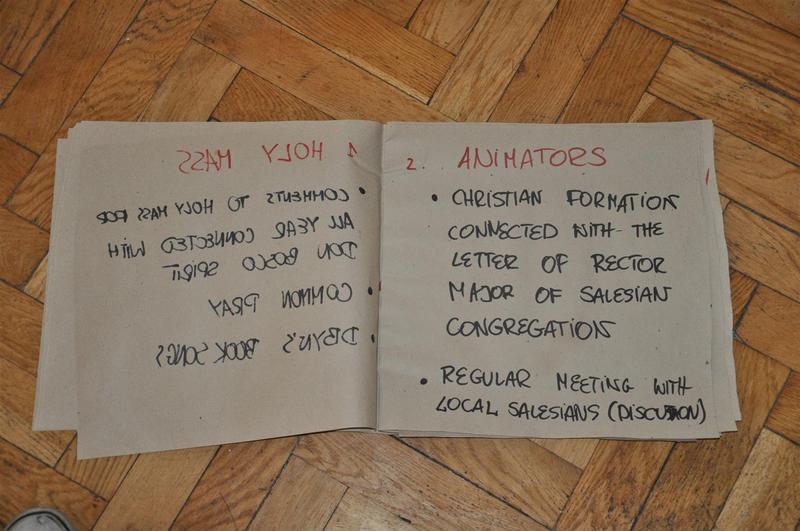 1. HOLY MASS
• COMMENTS TO HOLY MASS FOR
ALL YEAR CONNECTED WITH
DON BOSCO SPIRIT
• COMMON PRAY
• DBYN'S BOOK SONGS
2. ANIMATORS
• CHRISTIAN FORMATION
CONNECTED WITH THE
LETTER OF RECTOR
MAJOR OF SALESIAN
CONGREGATION
• REGULAR MEETING WITH
LOCAL SALESIANS (DISCUSION)